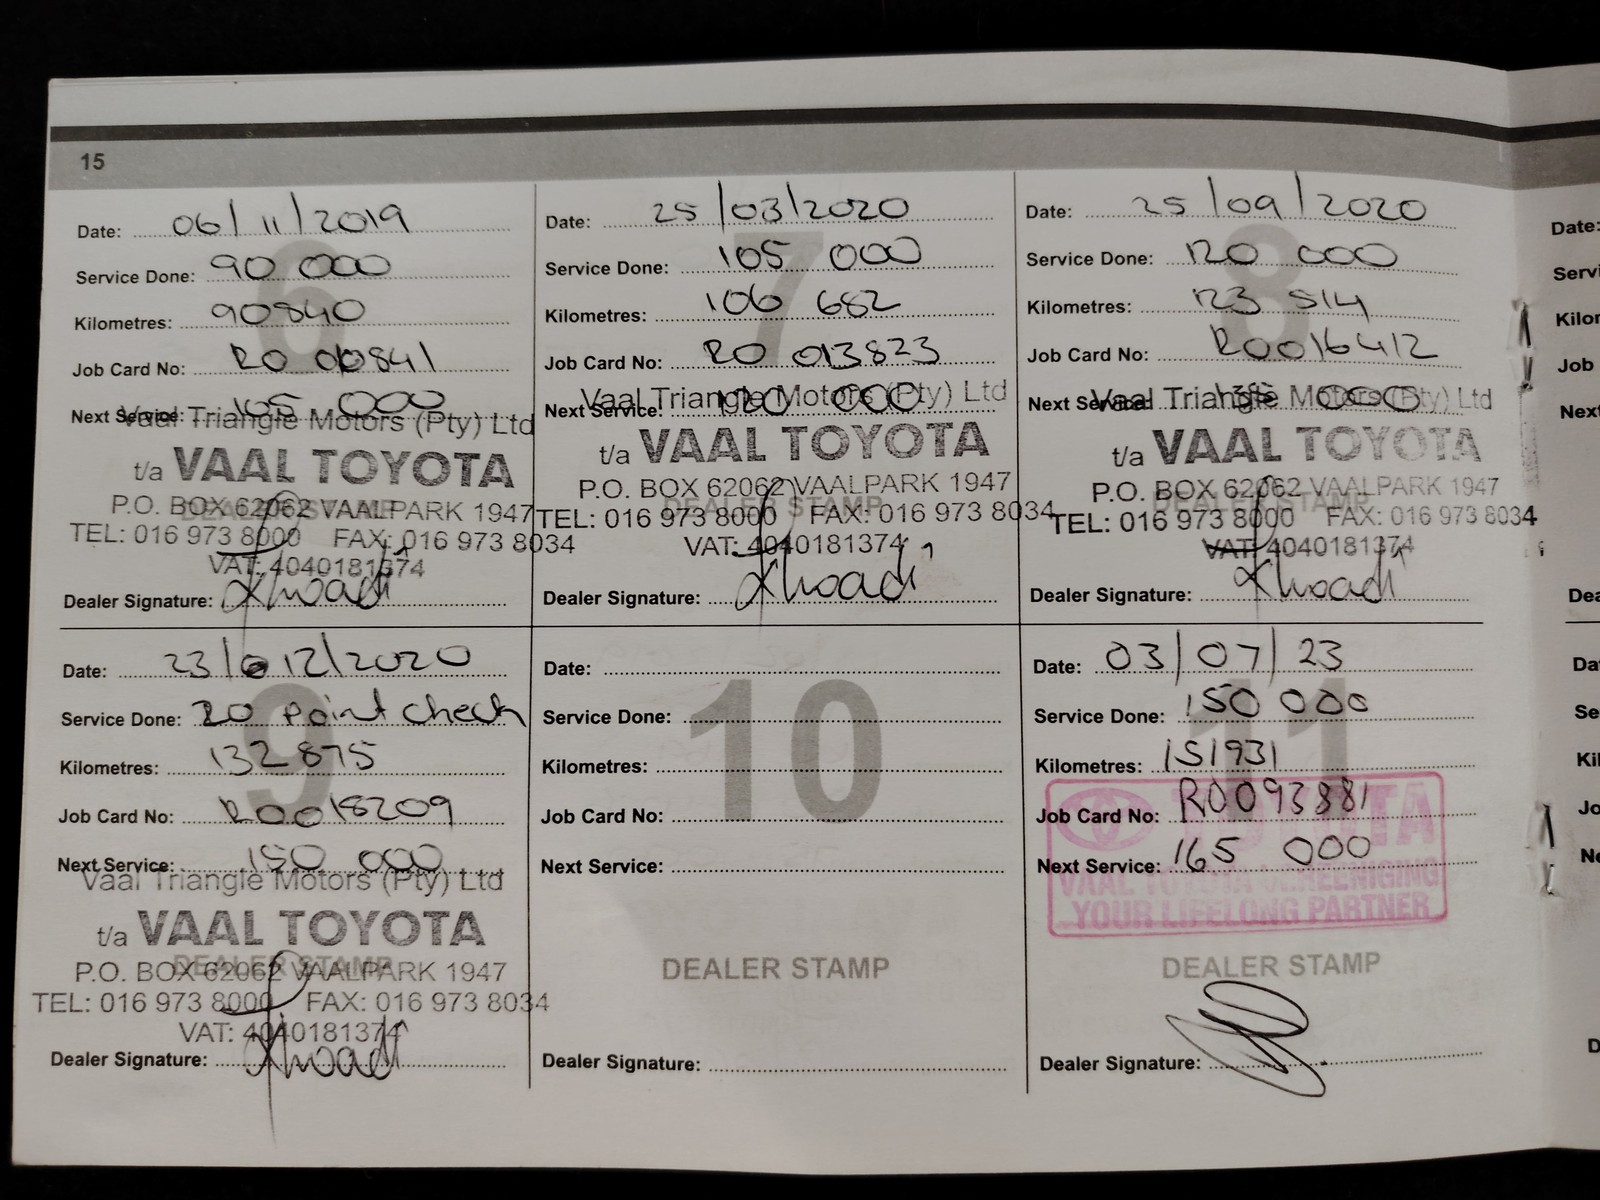 15
Date: 06/11/2019
Service Done: 90 000
Kilometres: 90840
Job Card No:
Next Service: 105 000
Vaal Triangle Motors (Pty) Ltd
t/a VAAL TOYOTA
P.O. BOX 62062 VAALPARK 1947
DEALER STAMP
TEL: 016 973 8000 FAX: 016 973 8034
VAT: 4040181374
Dealer Signature:
6
Date: 25/03/2020
Service Done: 105 000
Kilometres: 106 682
Job Card No: RO 013823
Next Service: 120 000
Vaal Triangle Motors (Pty) Ltd
t/a VAAL TOYOTA
P.O. BOX 62062 VAALPARK 1947
DEALER STAMP
TEL: 016 973 8000 FAX: 016 973 8034
VAT: 4040181374
Dealer Signature:
7
Date: 25/09/2020
Service Done: 120 000
Kilometres: 123 514
Job Card No: RO016412
Next Service: 000
Vaal Triangle Motors (Pty) Ltd
t/a VAAL TOYOTA
P.O. BOX 62062 VAALPARK 1947
DEALER STAMP
TEL: 016 973 8000 FAX: 016 973 8034
VAT: 4040181374
Dealer Signature:
8
Date: 23/12/2020
Service Done: 20 Point Check
Kilometres: 132875
Job Card No: RO018209
Next Service: 150 000
Vaal Triangle Motors (Pty) Ltd
t/a VAAL TOYOTA
P.O. BOX 62062 VAALPARK 1947
DEALER STAMP
TEL: 016 973 8000 FAX: 016 973 8034
VAT: 4040181374
Dealer Signature:
9
Date:
Service Done:
Kilometres:
Job Card No:
Next Service:
10
DEALER STAMP
Dealer Signature:
Date: 03/07/23
Service Done: 150 000
Kilometres: 151931
Job Card No: RO093881
Next Service: 165 000
11
TOYOTA
VAAL TOYOTA VEREENIGING
YOUR LIFELONG PARTNER
DEALER STAMP
Dealer Signature:
Date:
Servi
Kilo
Job
Next
Dea
Da
Se
Ki
Jo
Ne
D